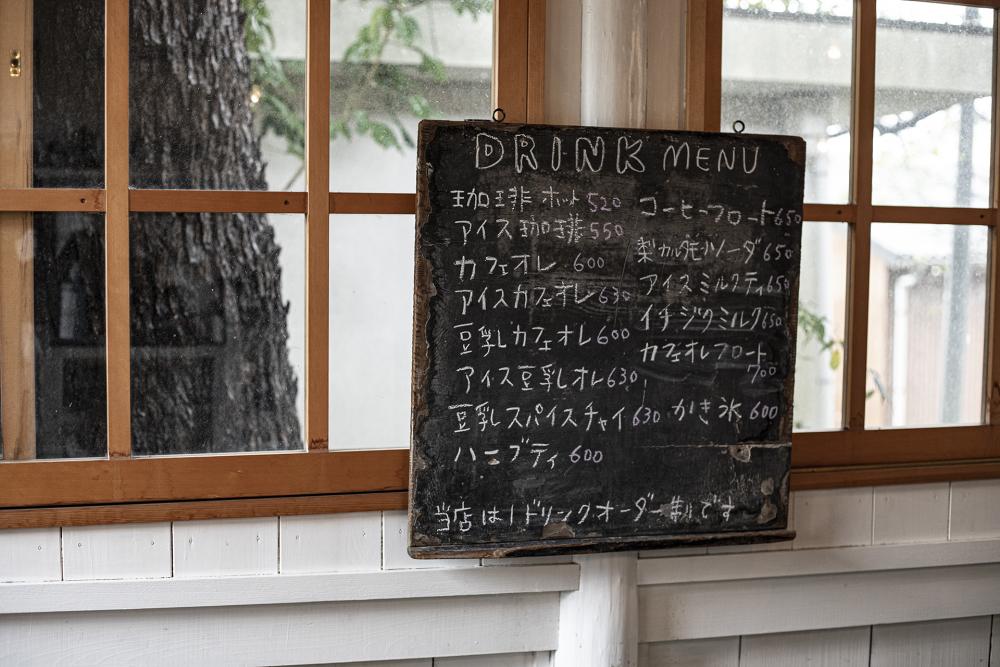 DRINK MENU
珈琲 ホット 520
アイス珈琲 550
カフェオレ 600
アイスカフェオレ 630
豆乳カフェオレ 600
アイス豆乳オレ 630
豆乳スパイスチャイ 630
ハニブティ 600
コーヒーフロート 650
梨カルダモンソーダ 650
アイスミルクティ 650
イチジクミルク 650
カフェオレフロート
700
かき氷 600
当店は1ドリンクオーダー制です